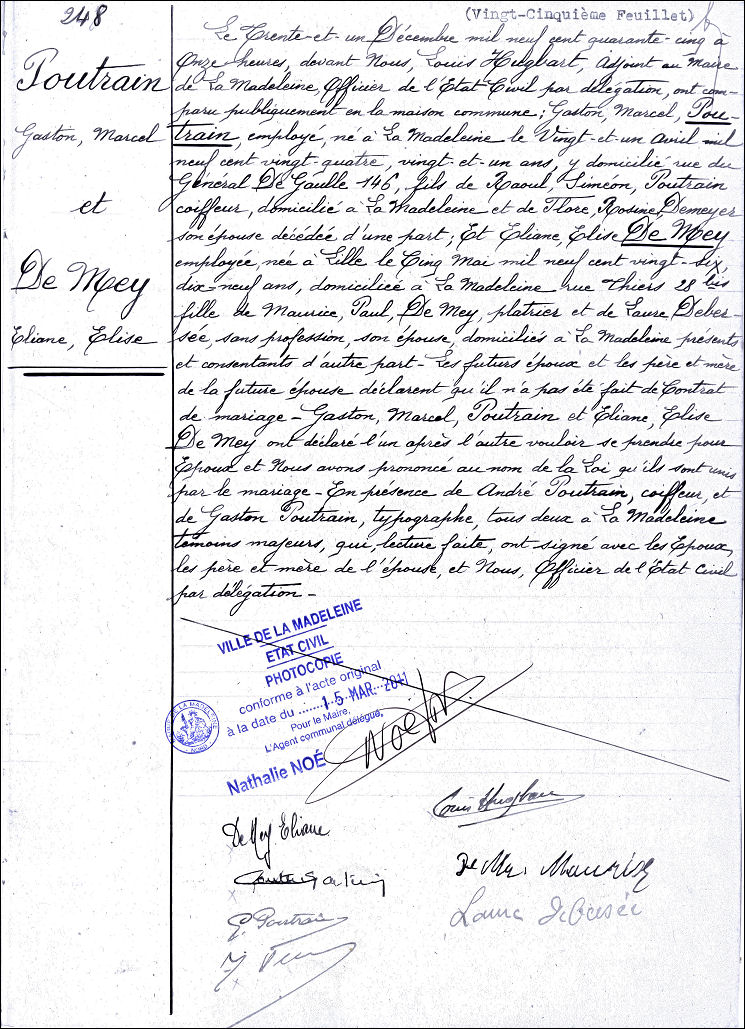 248
(Vingt-Cinquième Feuillet)
Poutrain
Gaston, Marcel
et
De Mey
Eliane, Elise
Le Trente-et-un Décembre mil neuf cent quarante-cinq à
Onze heures, devant Nous, Louis Hugbart, Adjoint au Maire
de La Madeleine, Officier de l'Etat Civil par délégation, ont com-
paru publiquement en la maison commune: Gaston, Marcel, Pou-
train, employé, né à La Madeleine le Vingt-et-un Avril mil
neuf cent vingt-quatre, vingt-et-un ans, y domicilié rue du
Général De Gaulle 146, fils de Raoul, Siméon, Poutrain
coiffeur, domicilié à La Madeleine et de Flore, Rosine, Demeyer
son épouse décédée d'une part; Et Eliane, Elise De Mey
employée, née à Lille le Cinq Mai mil neuf cent vingt-six,
dix-neuf ans, domiciliée à La Madeleine rue Thiers 28 bis
fille de Maurice, Paul, De Mey, platrier et de Laure, Deber-
sée, sans profession, son épouse, domiciliés à La Madeleine présents
et consentants d'autre part - Les futurs époux et les père et mère
de la future épouse déclarent qu'il n'a pas été fait de Contrat
de mariage - Gaston, Marcel, Poutrain et Eliane, Elise
De Mey ont déclaré l'un après l'autre vouloir se prendre pour
Epoux et Nous avons prononcé au nom de la Loi qu'ils sont unis
par le mariage - En présence de André Poutrain, coiffeur, et
de Gaston Poutrain, typographe, tous deux à La Madeleine
témoins majeurs, qui, lecture faite, ont signé avec les Epoux,
les père et mère de l'épouse, et Nous, Officier de l'Etat Civil
par délégation -
VILLE DE LA MADELEINE
ETAT CIVIL
PHOTOCOPIE
conforme à l'acte original
à la date du ....... 15 MAR. 2011
Pour le Maire,
L'Agent communal délégué,
Nathalie NOÉ
De Mey Eliane
G. Poutrain
De Mey Maurice
Laure Debersée